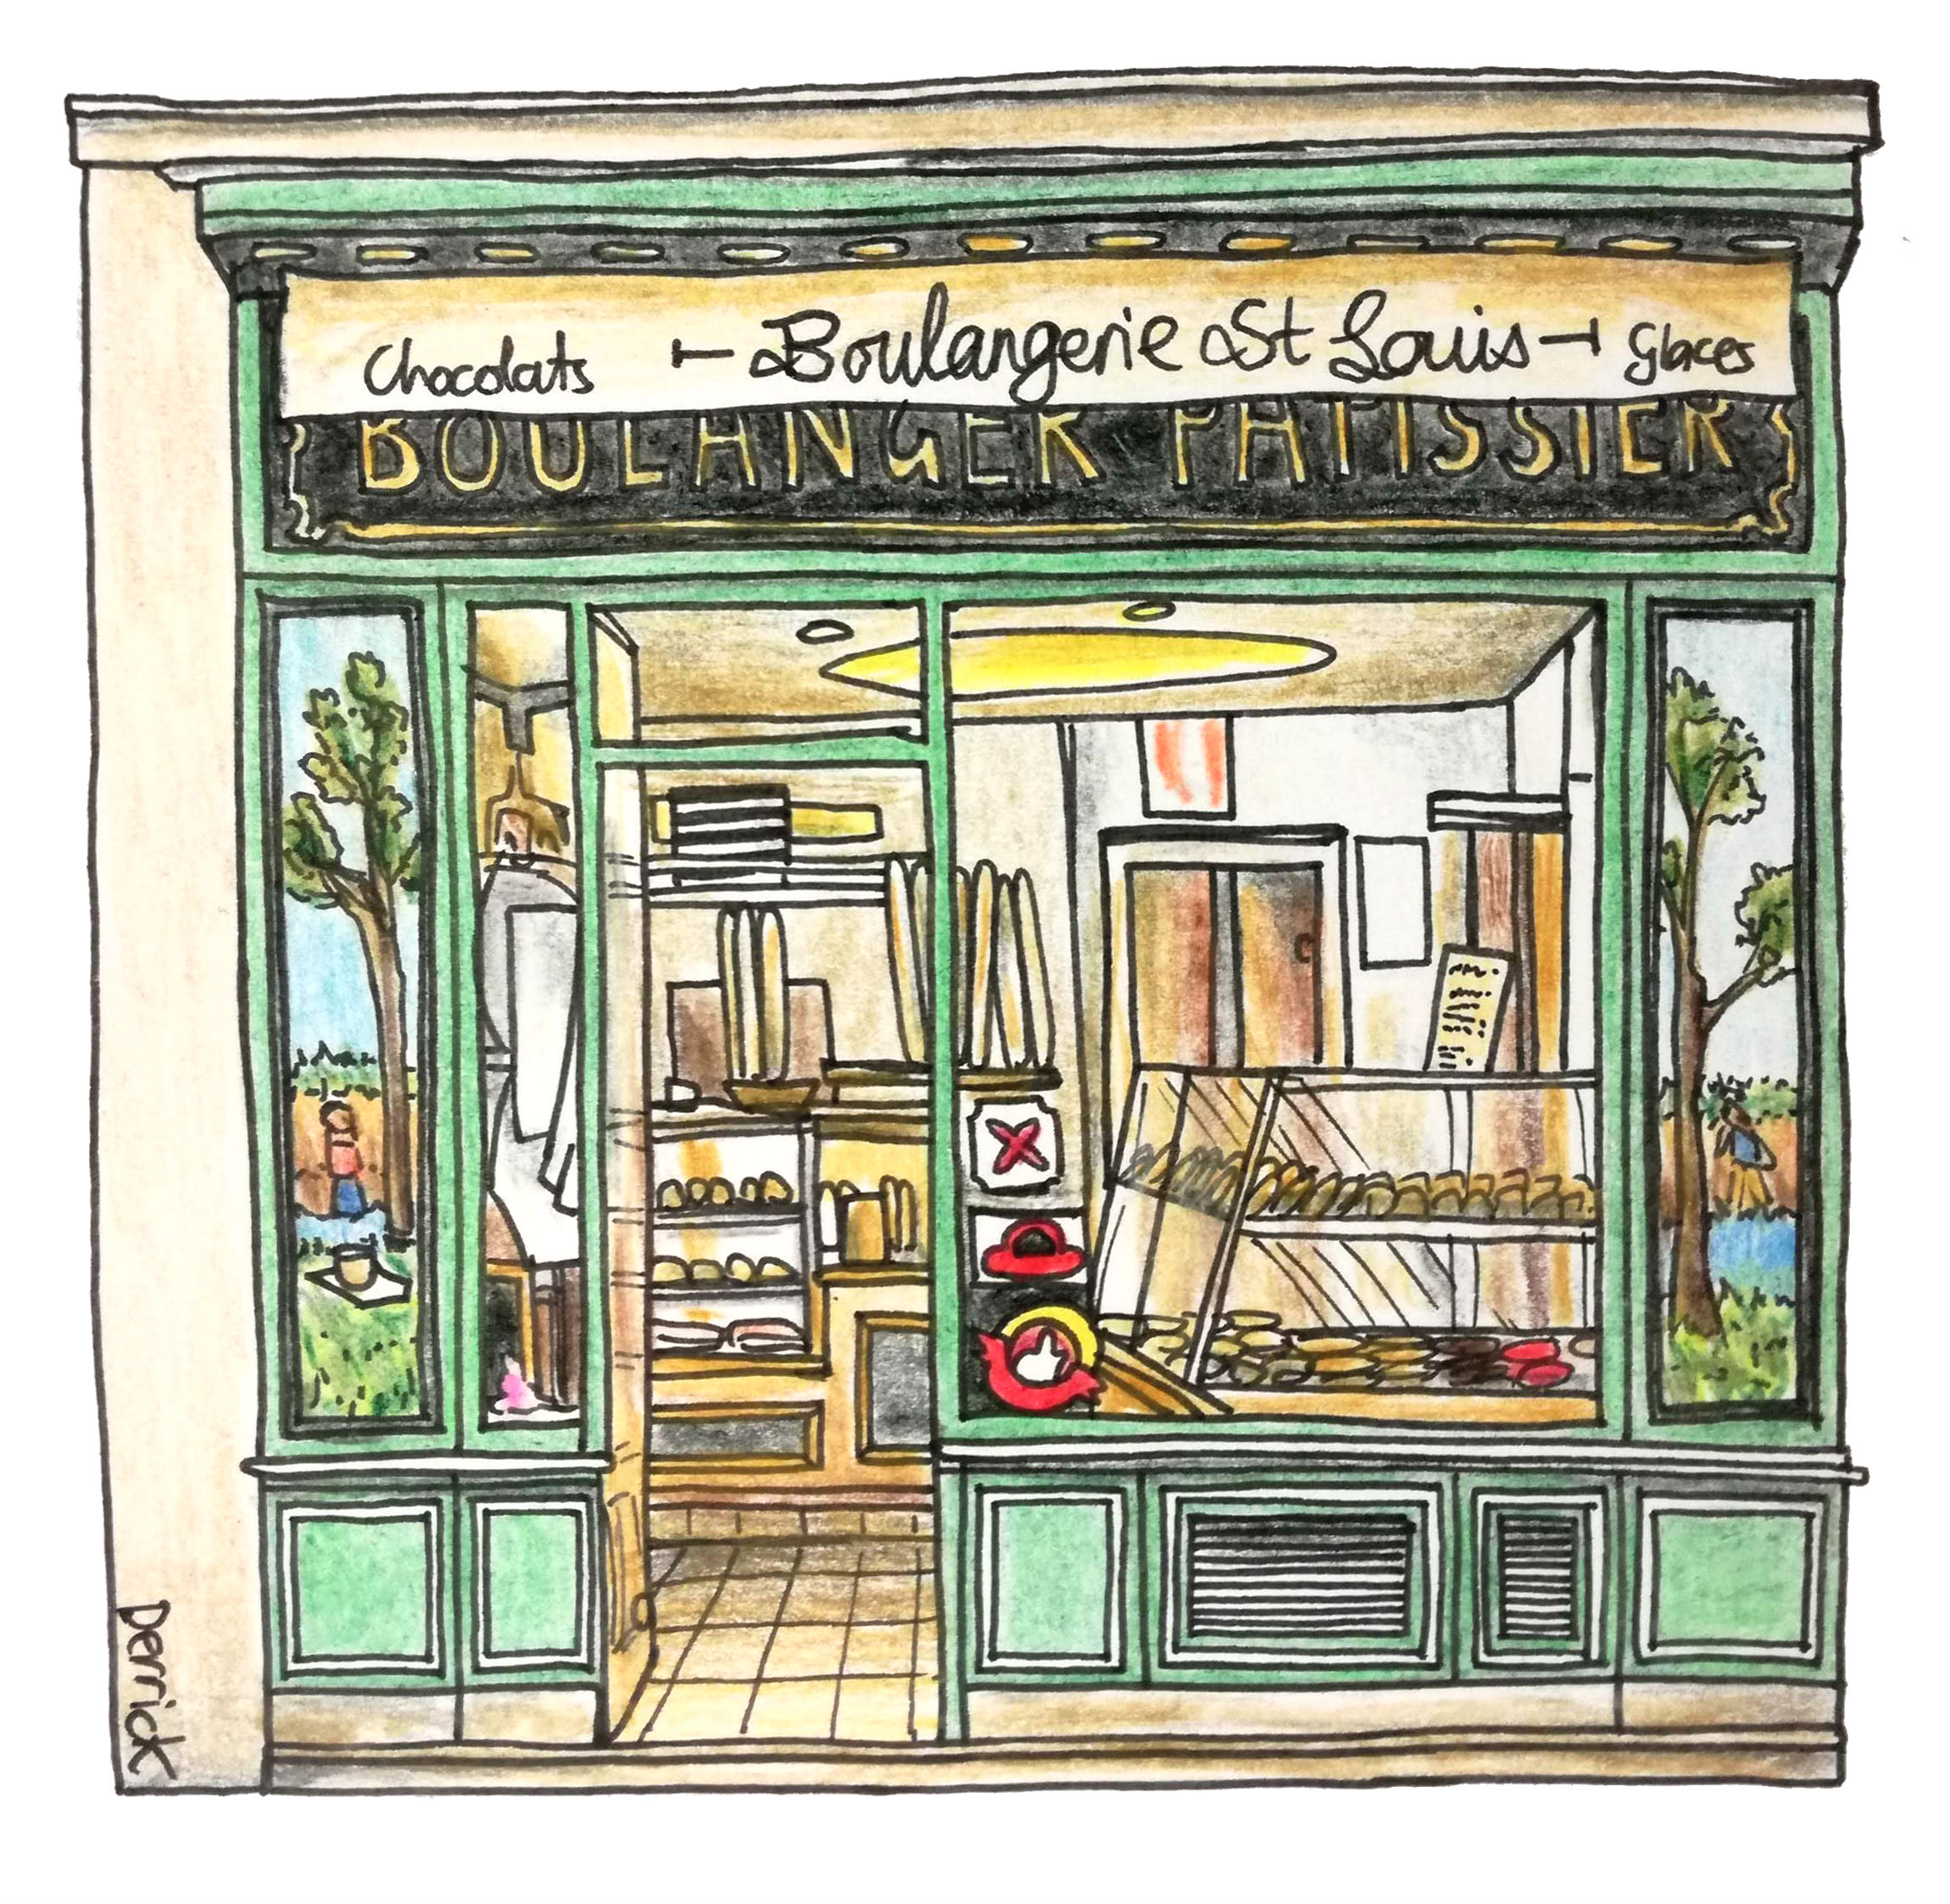 Chocolats Boulangerie St Louis Glaces
BOULANGER PATISSIER
Derrick